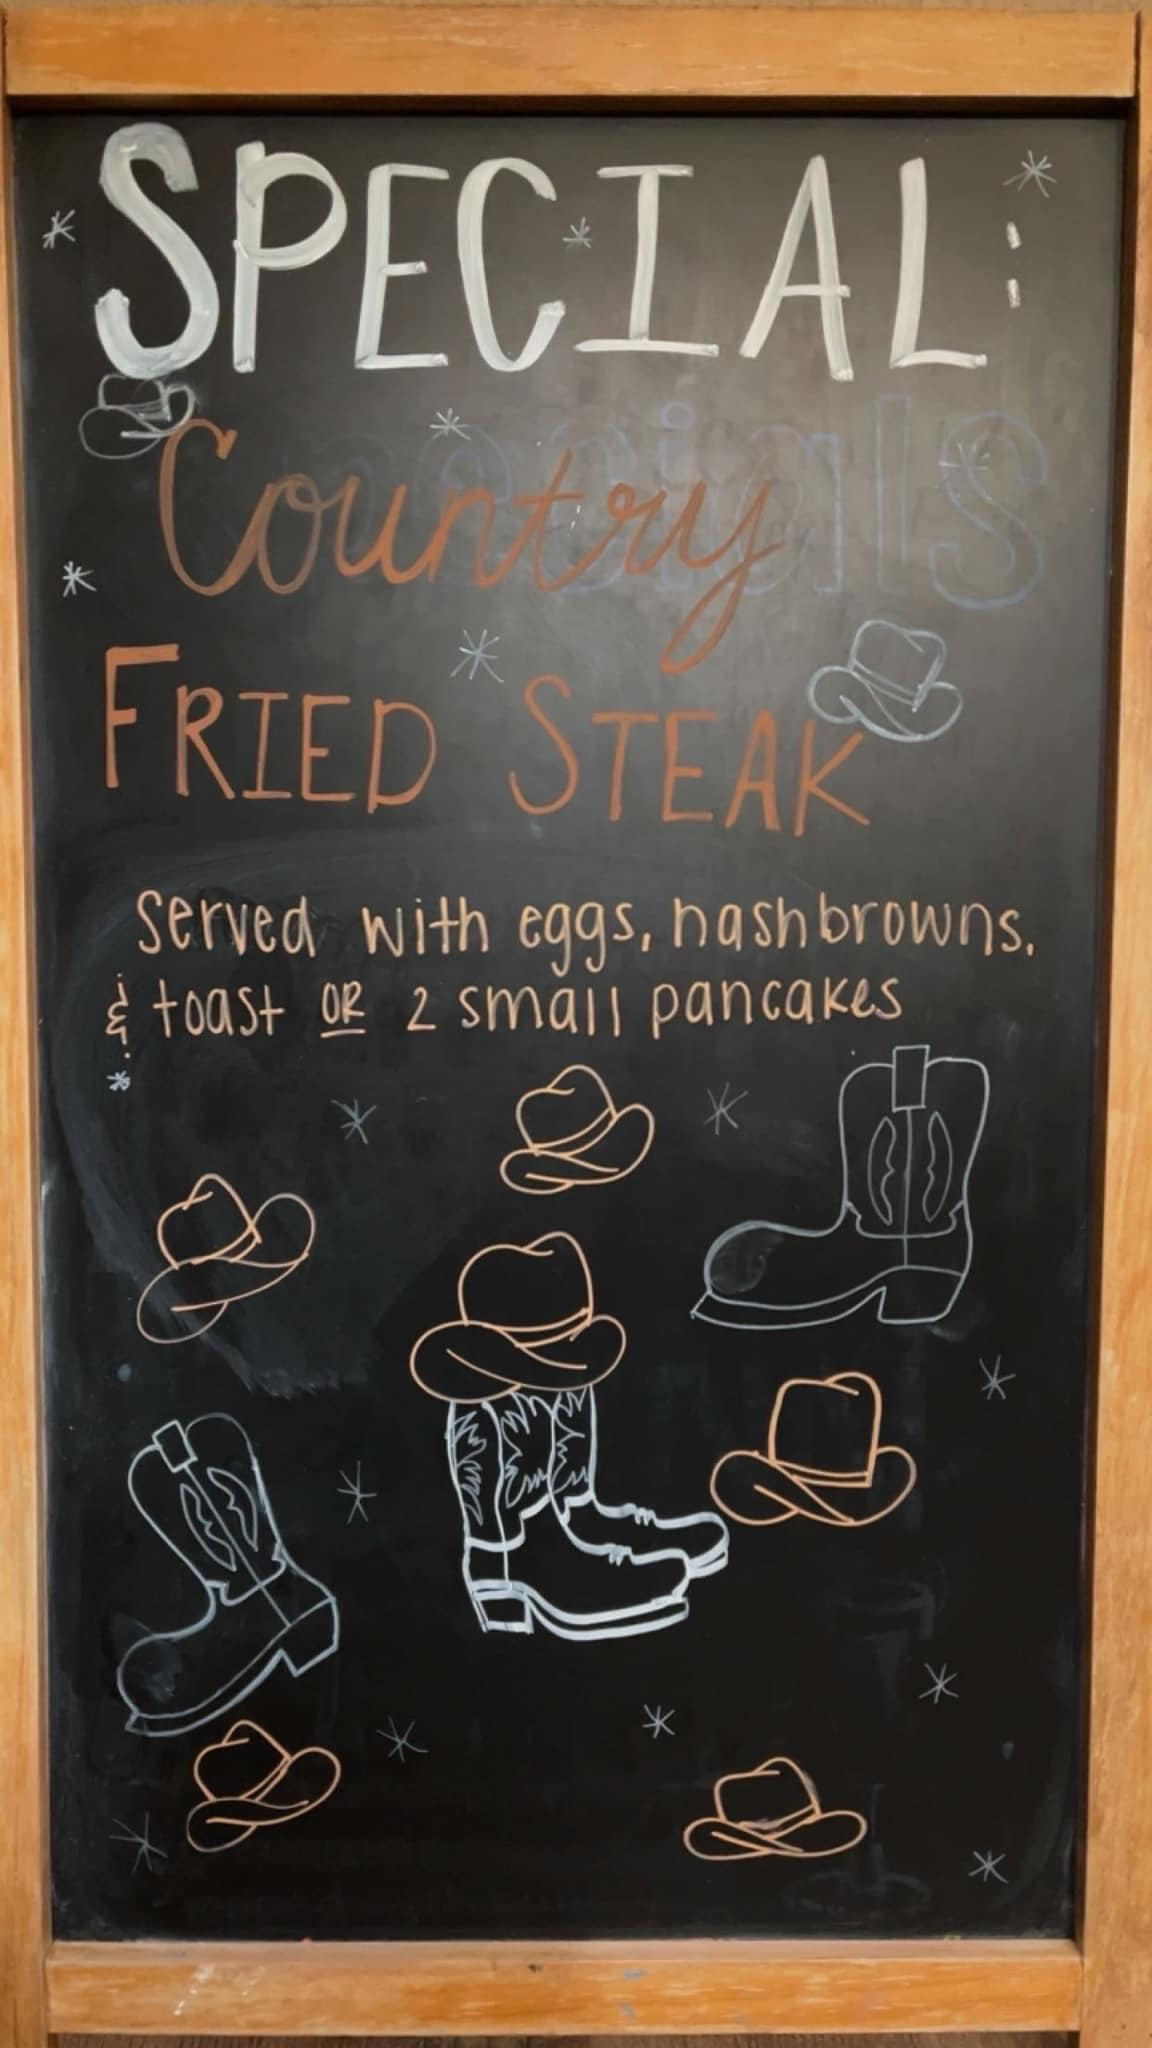 SPECIAL:
Country
FRIED STEAK
Served with eggs, hashbrowns,
& toast OR 2 small pancakes